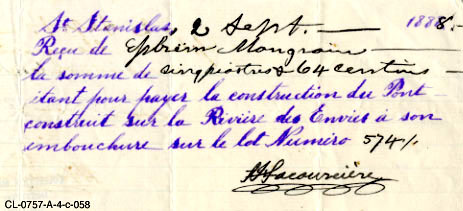 St Stanislas, 2 Sept. 1888.
Reçu de Ephrem Mongrain
la somme de cinq piastres & 64 centins
étant pour payer la construction du Pont
construit sur la Rivière des Envies à son
embouchure sur le lot Numéro 574
Lacoursière
CL-0757-A-4-c-058